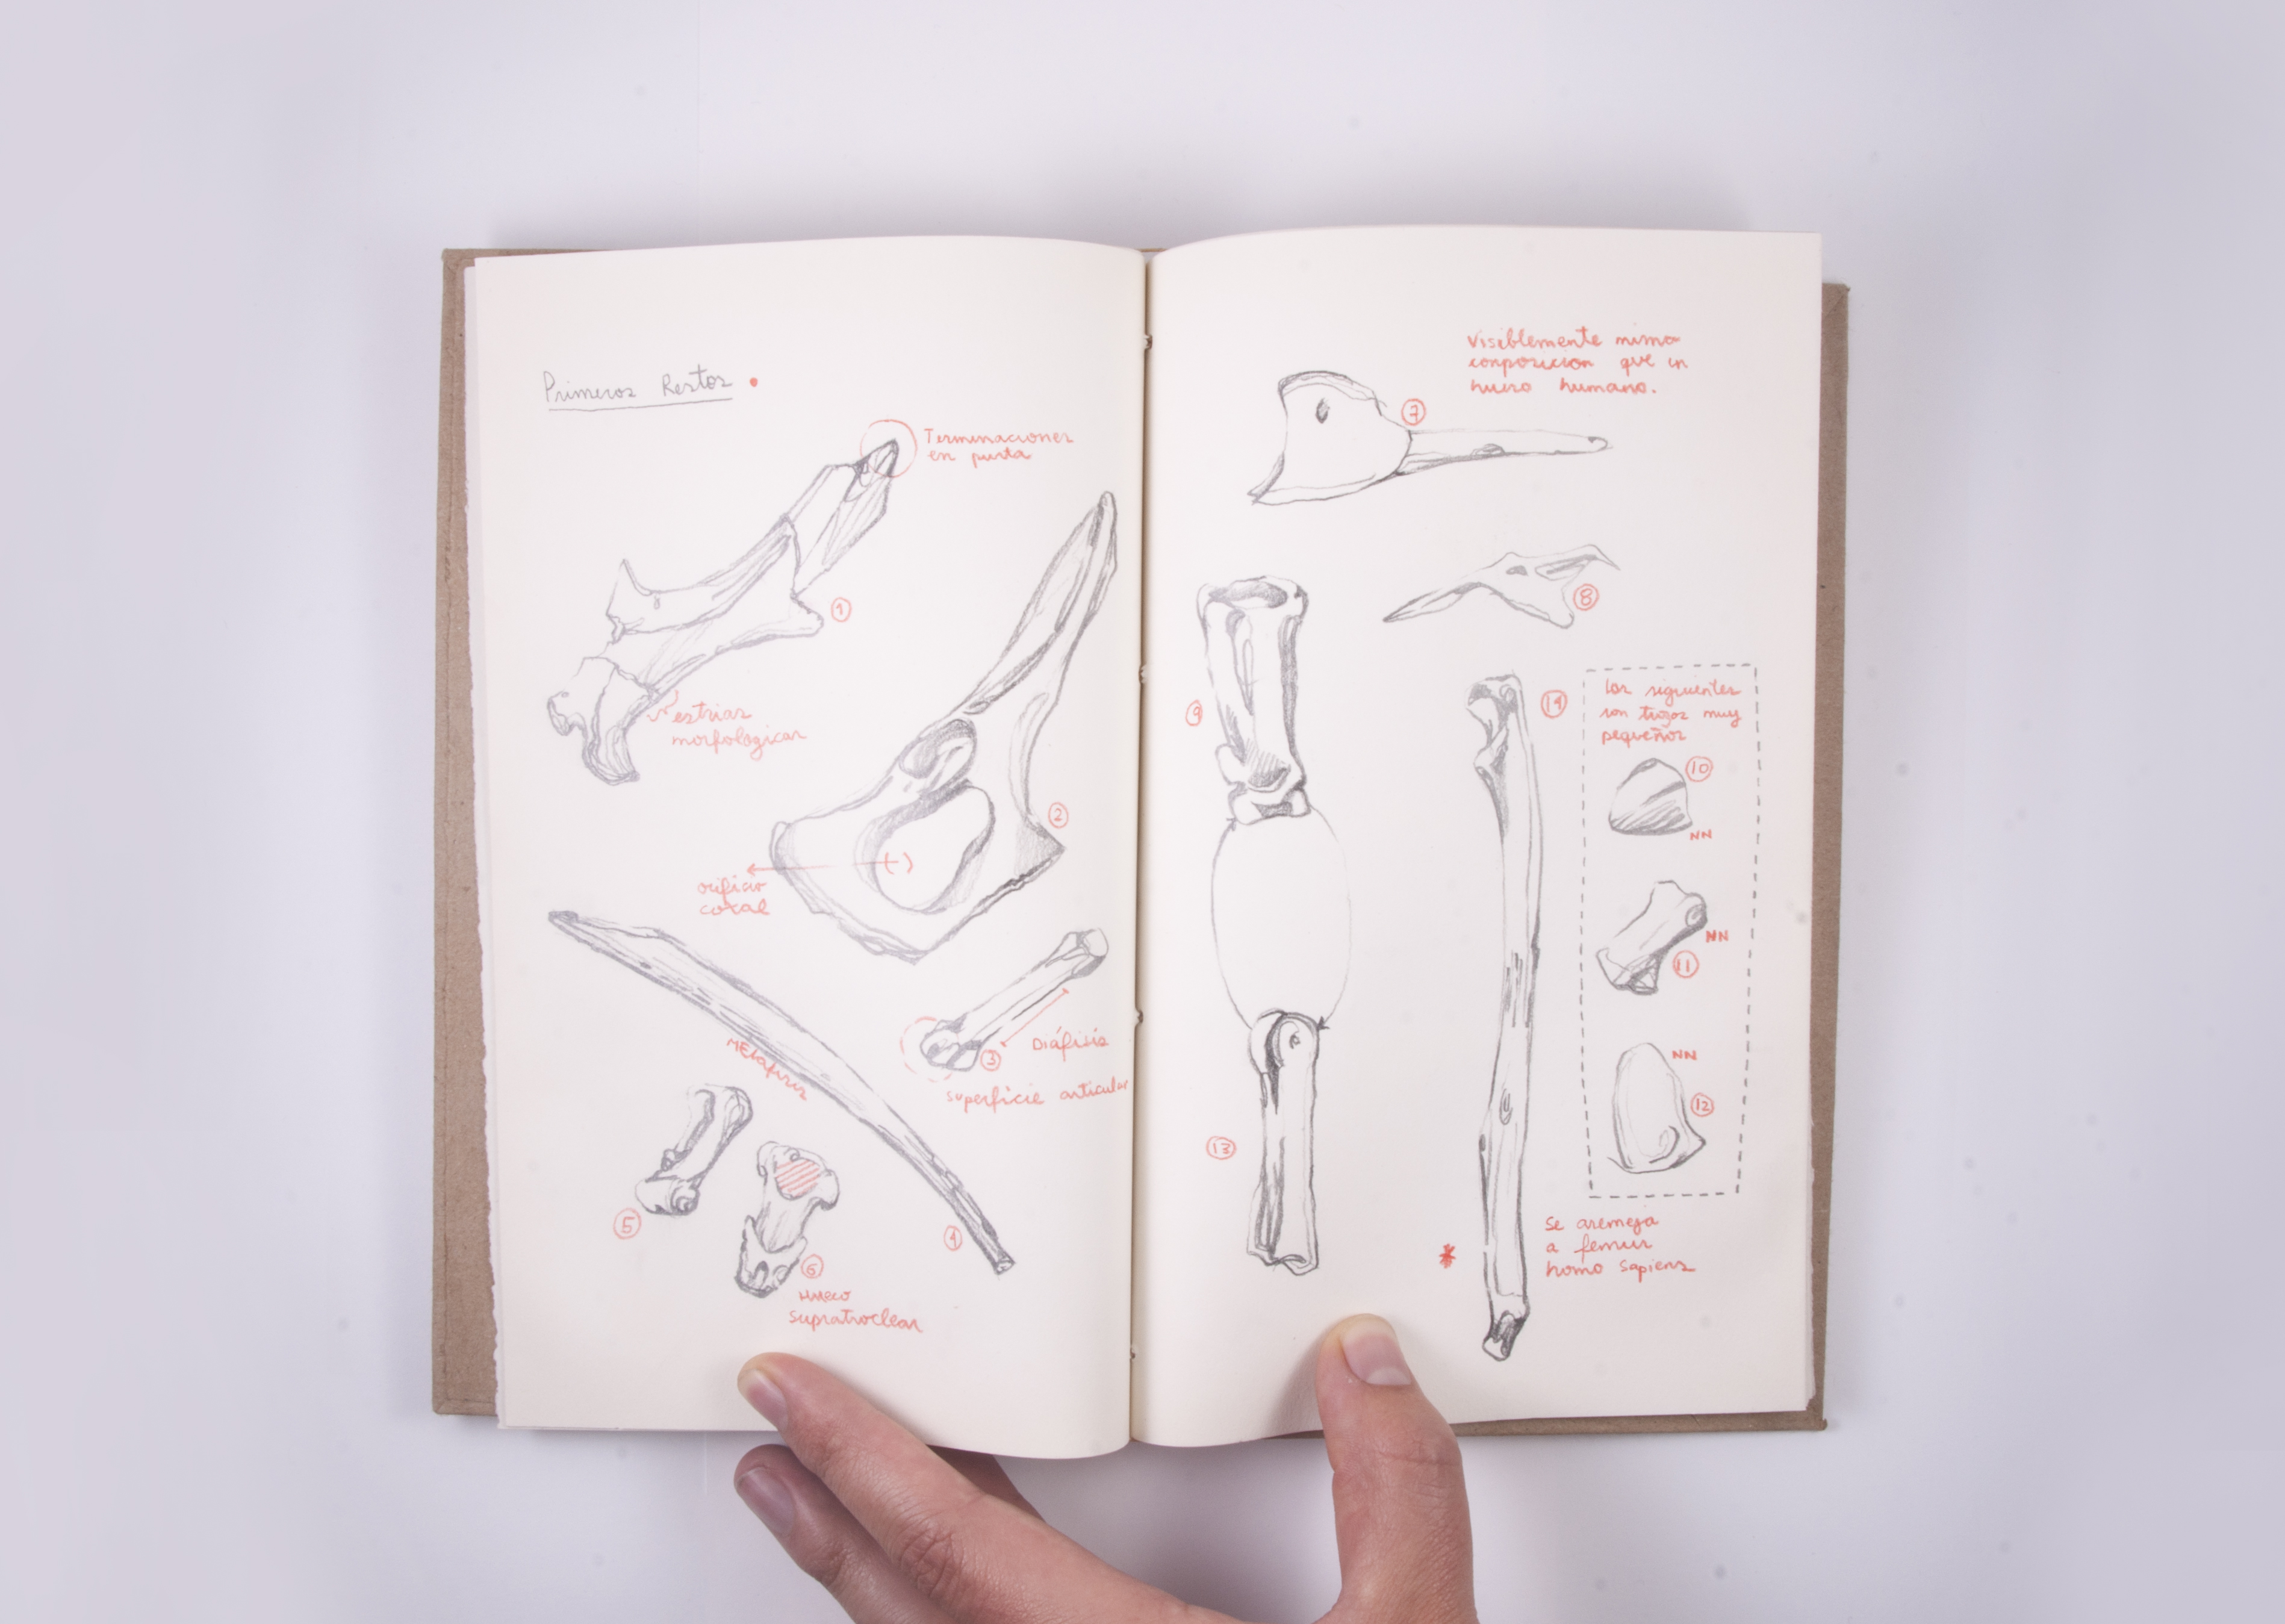 Primeros Restos
Terminaciones
en punta
1
estrias
morfologicas
2
orificio
coxal
Metafisis
3
Diáfisis
superficie articular
5
4
6
Hueco
supratroclear
Visiblemente misma
composicion que un
hueso humano.
7
8
9
14
Los siguientes
son trozos muy
pequeños
10
NN
NN
11
NN
12
13
Se asemeja
a femur
homo sapiens